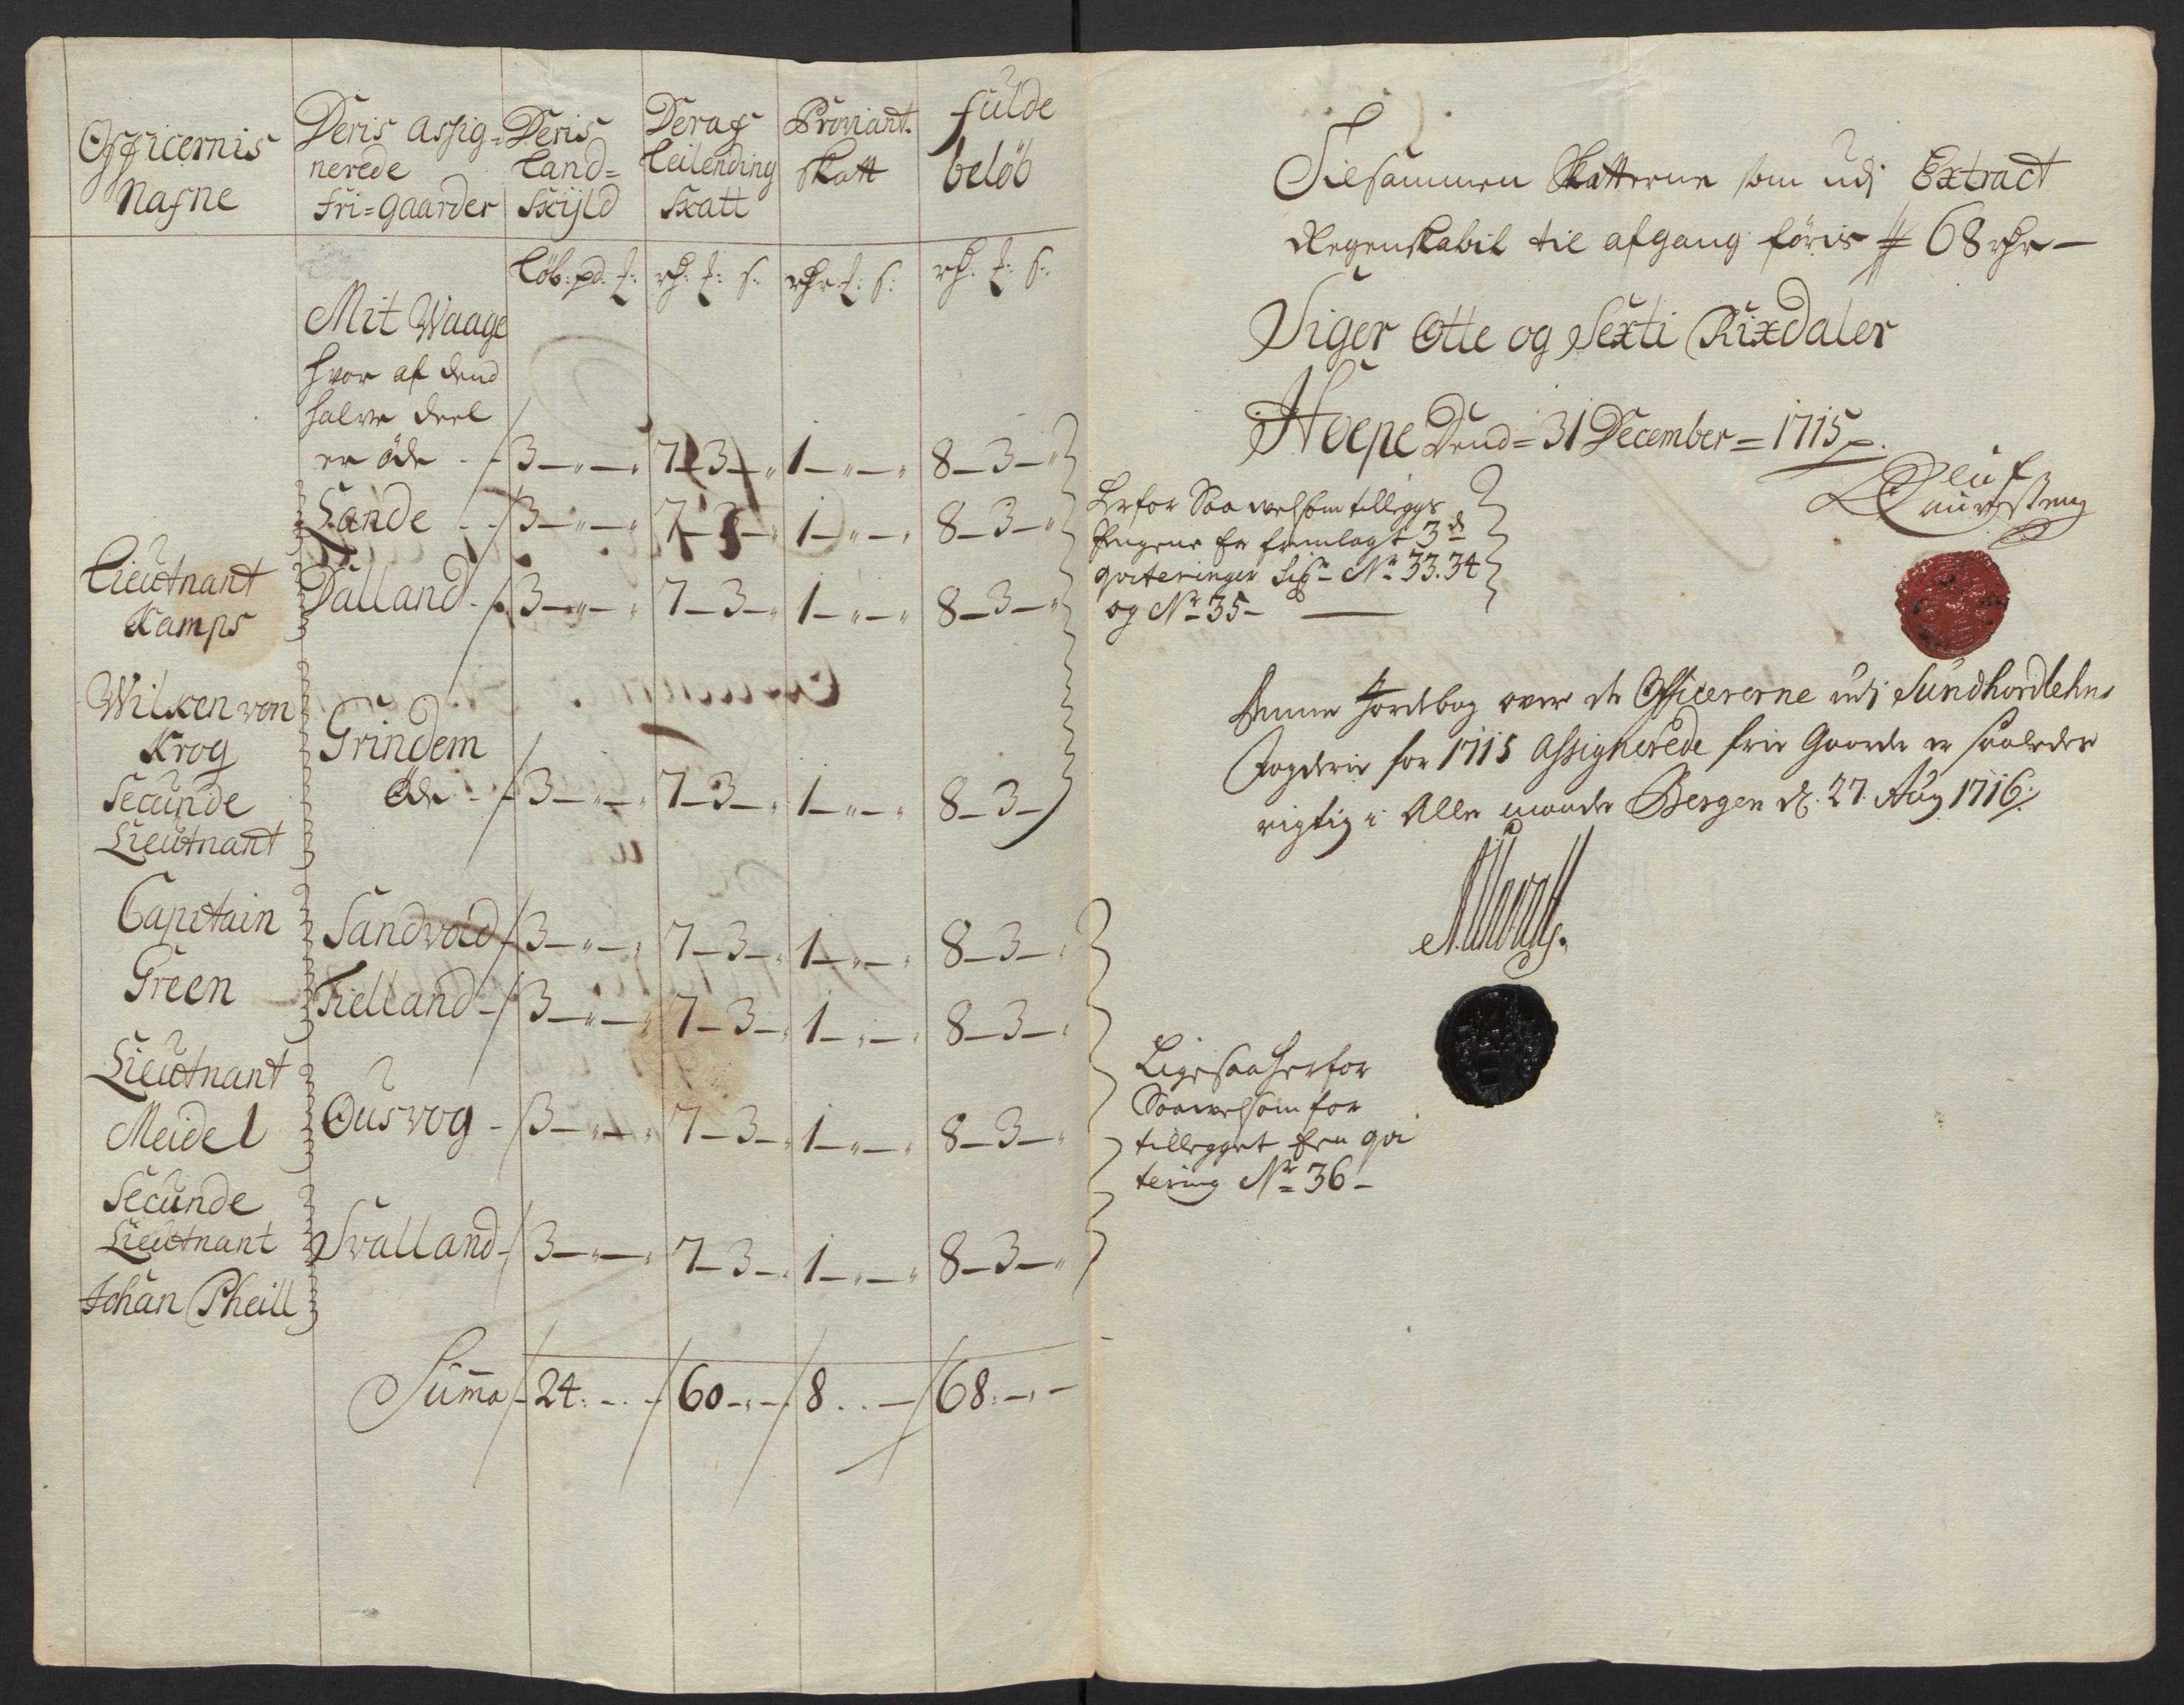 Officernis Nafne | Deris assig= nerede Fri=gaarder | Deris Land= Skijld | Deraf Leilending Skatt | Proviant. skatt | fulde beløb
Løb: pd. | rd: s: | rdr s: | rd: s:
Mit Waage
hvor af dend
halve deel
er øde - 3 - " - " 7 - 3 - " 1 - " - " 8 - 3 - "
Sande - 3 - " - " 7 - 3 - " 1 - " - " 8 - 3 - "
Lieutnant Kamps
Dalland - 3 - " - " 7 - 3 - " 1 - " - " 8 - 3 - "
Wilken von
Krog
Secunde
Lieutnant
Grindem
Øde - 3 - " - " 7 - 3 - " 1 - " - " 8 - 3 -
Capitain
Green
Sandvold - 3 - " - " 7 - 3 - " 1 - " - " 8 - 3 - "
Fielland - 3 - " - " 7 - 3 - " 1 - " - " 8 - 3 - "
Lieutnant
Meidel
Ousvog - 3 - " - " 7 - 3 - " 1 - " - " 8 - 3 - "
Secunde
Lieutnant
Johan Pheill
Svalland - 3 - " - " 7 - 3 - " 1 - " - " 8 - 3 - "
Suma - 24: - . - 60 - . - 8 . . - 68: - . -
Tilsammen Skatterne som udj Extract
Regenskabit til afgang føris # 68 rdr -
Siger Otte og Sexti Rixdaler
Hoepe Dend = 31 December = 1715 =
Oluf
Laursteng
herfor Saavelsom tilleggs
Pengene er fremlagt 3de
qviteringer No 33. 34
og No 35 -
Denne Jordebog over de Officererne udj Sundhordlehns
Fogderie for 1715 Assignerede frie Gaarde er saaledes
rigtig i Alle maader Bergen d. 27. Aug 1716:/
Ligesaa herfor
Saavelsom for
tillegget Een qvi
tering No 36 -